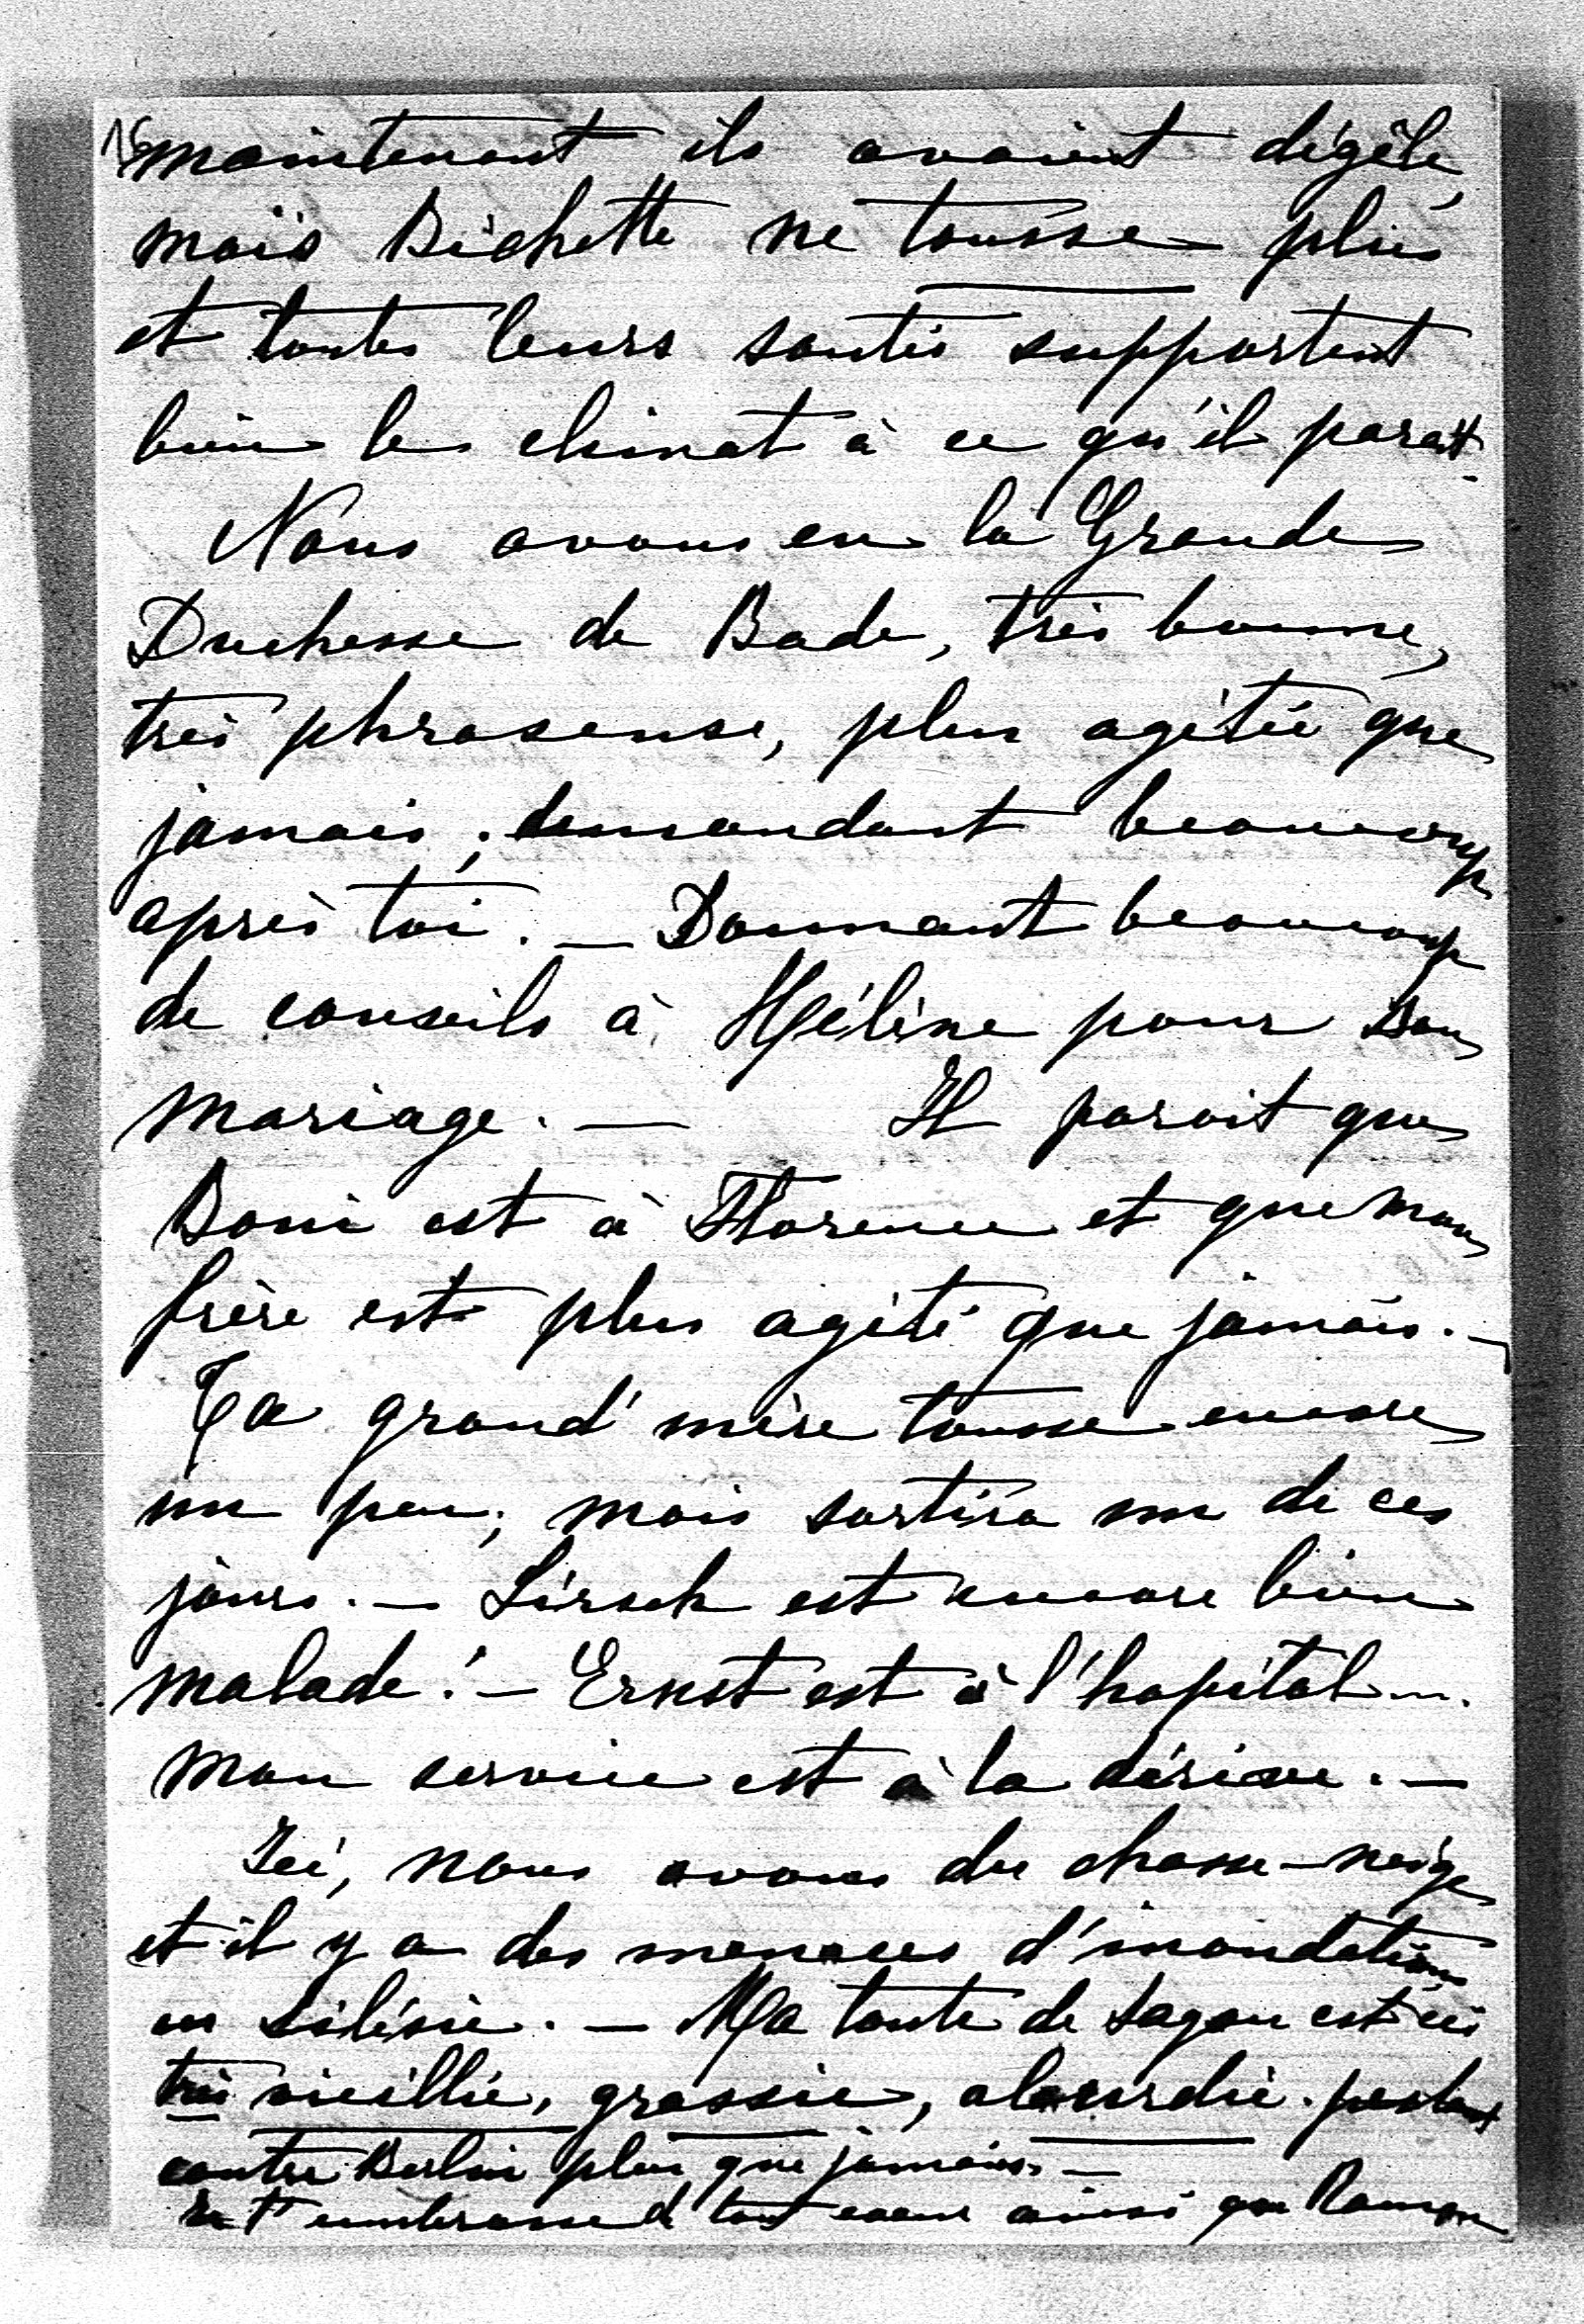 maintenant ils avaient dégelé,
mais Bichette ne tousse plus
et toutes leurs santés supportent
bien le climat à ce qu'il parait.
Nous avons eu la Grande
Duchesse de Bade, très bonne,
très phraseuse, plus agitée que
jamais, demandant beaucoup
après toi. — Donnant beaucoup
de conseils à Hélène pour son
mariage. — Il parait que
Boni est à Florence et que mon
frère est plus agité que jamais. —
Ta grand' mère tousse encore
un peu; mais sortira un de ces
jours. — Lirsch est encore bien
malade! — Ernst est à l'hopital....
mon service est à la dérive. —
Ici, nous avons du chasse-neige
et il y a des menaces d'inondations
en Silésie. — Ma tante de Sagan est ici
très vieillie, grossie, alourdie. pestant
contre Berlin plus que jamais. —
Je t'embrasse d tout coeur ainsi que